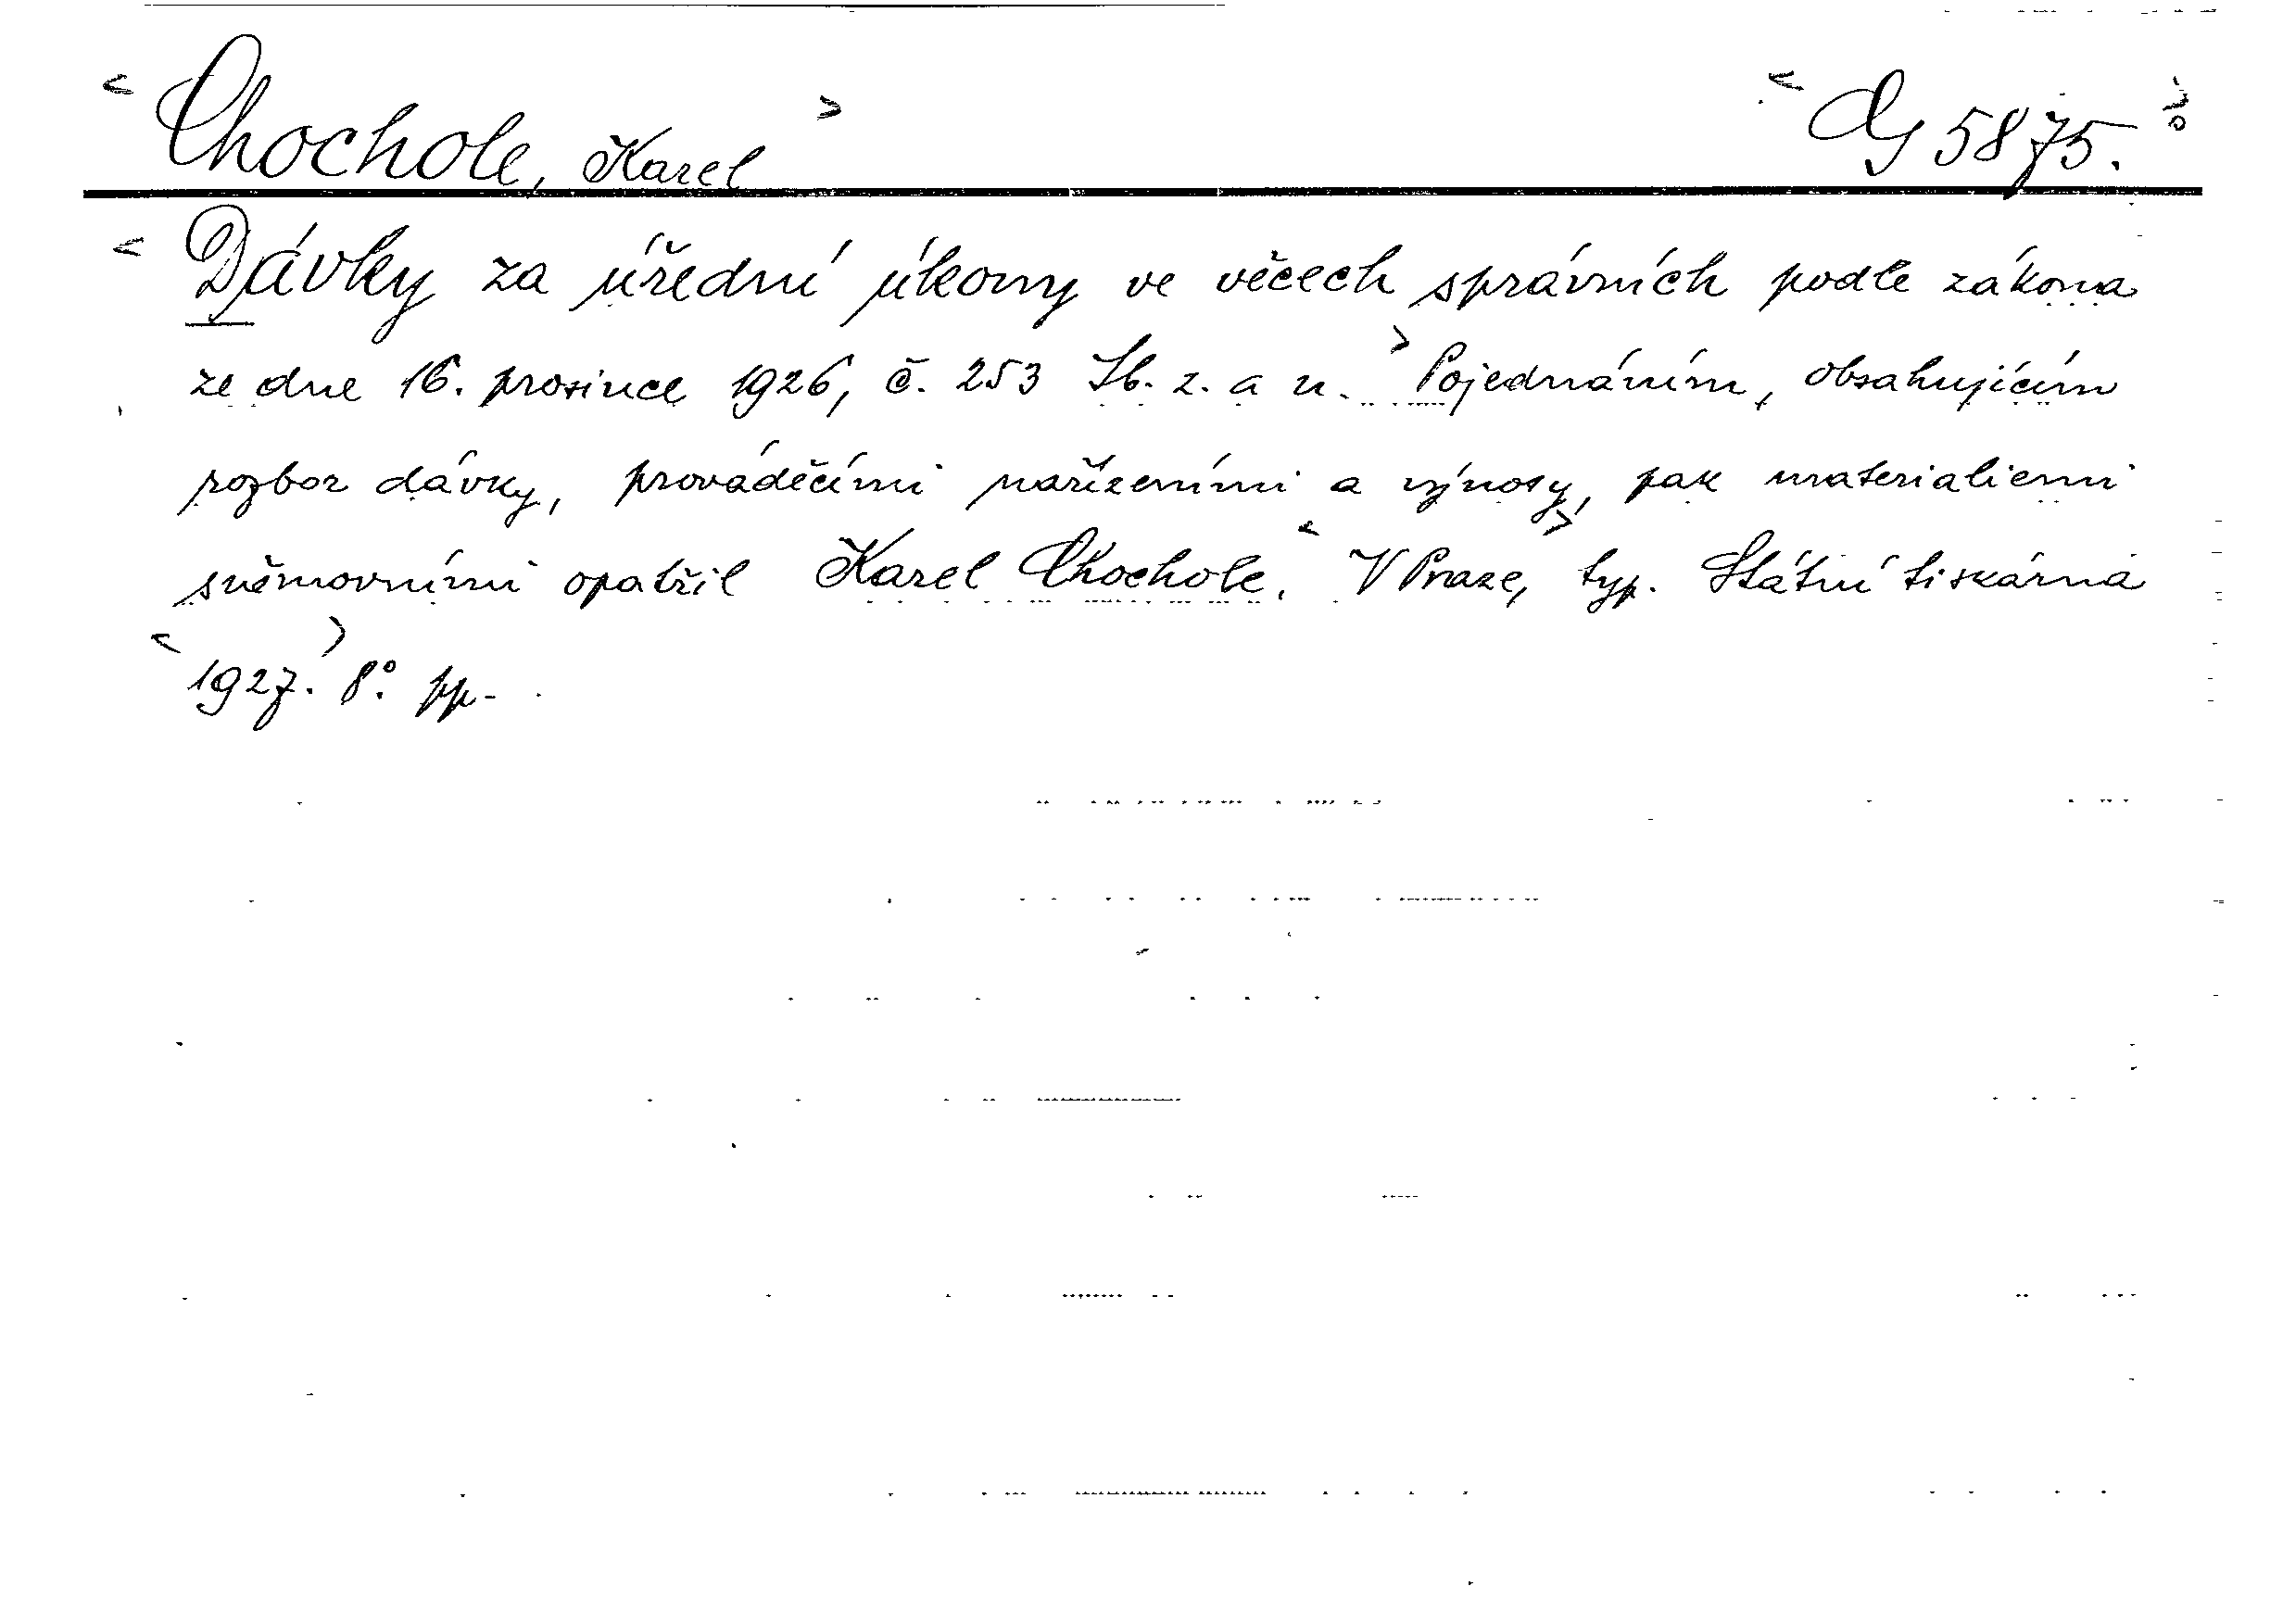 Chochole, Karel
Dávky za úřední úkony ve věcech správních podle zákona
ze dne 16. prosince 1926, č. 253 Sb. z. a n. Pojednáním, obsahujícím
rozbor dávky, prováděcími nařízeními a výnosy, pak materialiemi
sněmovními opatřil Karel Chochole. V Praze, typ. Státní tiskárna
1927. 8°. pp.
5875.